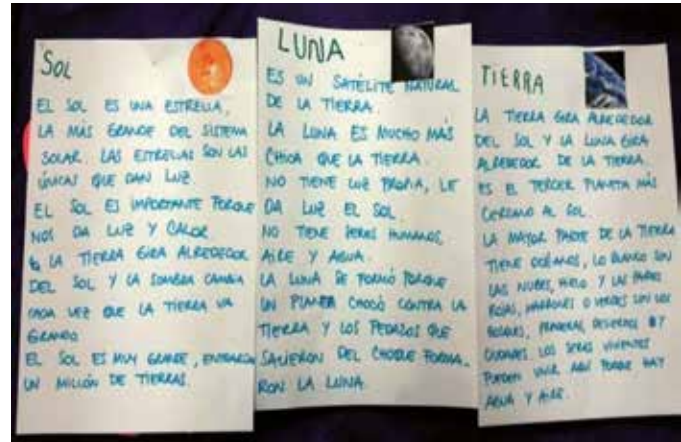 SOL
EL SOL ES UNA ESTRELLA,
LA MÁS GRANDE DEL SISTEMA
SOLAR. LAS ESTRELLAS SON LAS
ÚNICAS QUE DAN LUZ
EL SOL ES IMPORTANTE PORQUE
NOS DA LUZ Y CALOR.
LA TIERRA GIRA ALREDEDOR
DEL SOL Y LA SOMBRA CAMBIA
CADA VEZ QUE LA TIERRA VA
GIRANDO
EL SOL ES MUY GRANDE, ENTRARÍAN
UN MILLÓN DE TIERRAS.
LUNA
ES UN SATÉLITE NATURAL
DE LA TIERRA.
LA LUNA ES MUCHO MÁS
CHICA QUE LA TIERRA.
NO TIENE LUZ PROPIA, LE
DA LUZ EL SOL.
NO TIENE SERES HUMANOS,
AIRE Y AGUA.
LA LUNA SE FORMÓ PORQUE
UN PLANETA CHOCÓ CONTRA LA
TIERRA Y LOS PEDAZOS QUE
SALIERON DEL CHOQUE FORMA-
RON LA LUNA.
TIERRA
LA TIERRA GIRA ALREDEDOR
DEL SOL Y LA LUNA GIRA
ALREDEDOR DE LA TIERRA.
ES EL TERCER PLANETA MÁS
CERCANO AL SOL.
LA MAYOR PARTE DE LA TIERRA
TIENE OCÉANOS, LO BLANCO SON
LAS NUBES, HIELO Y LAS PARTES
ROJAS, MARRONES O VERDES SON LOS
BOSQUES, PRADERAS, DESIERTOS Y
CIUDADES. LOS SERES VIVIENTES
PUEDEN VIVIR AQUÍ PORQUE HAY
AGUA Y AIRE.